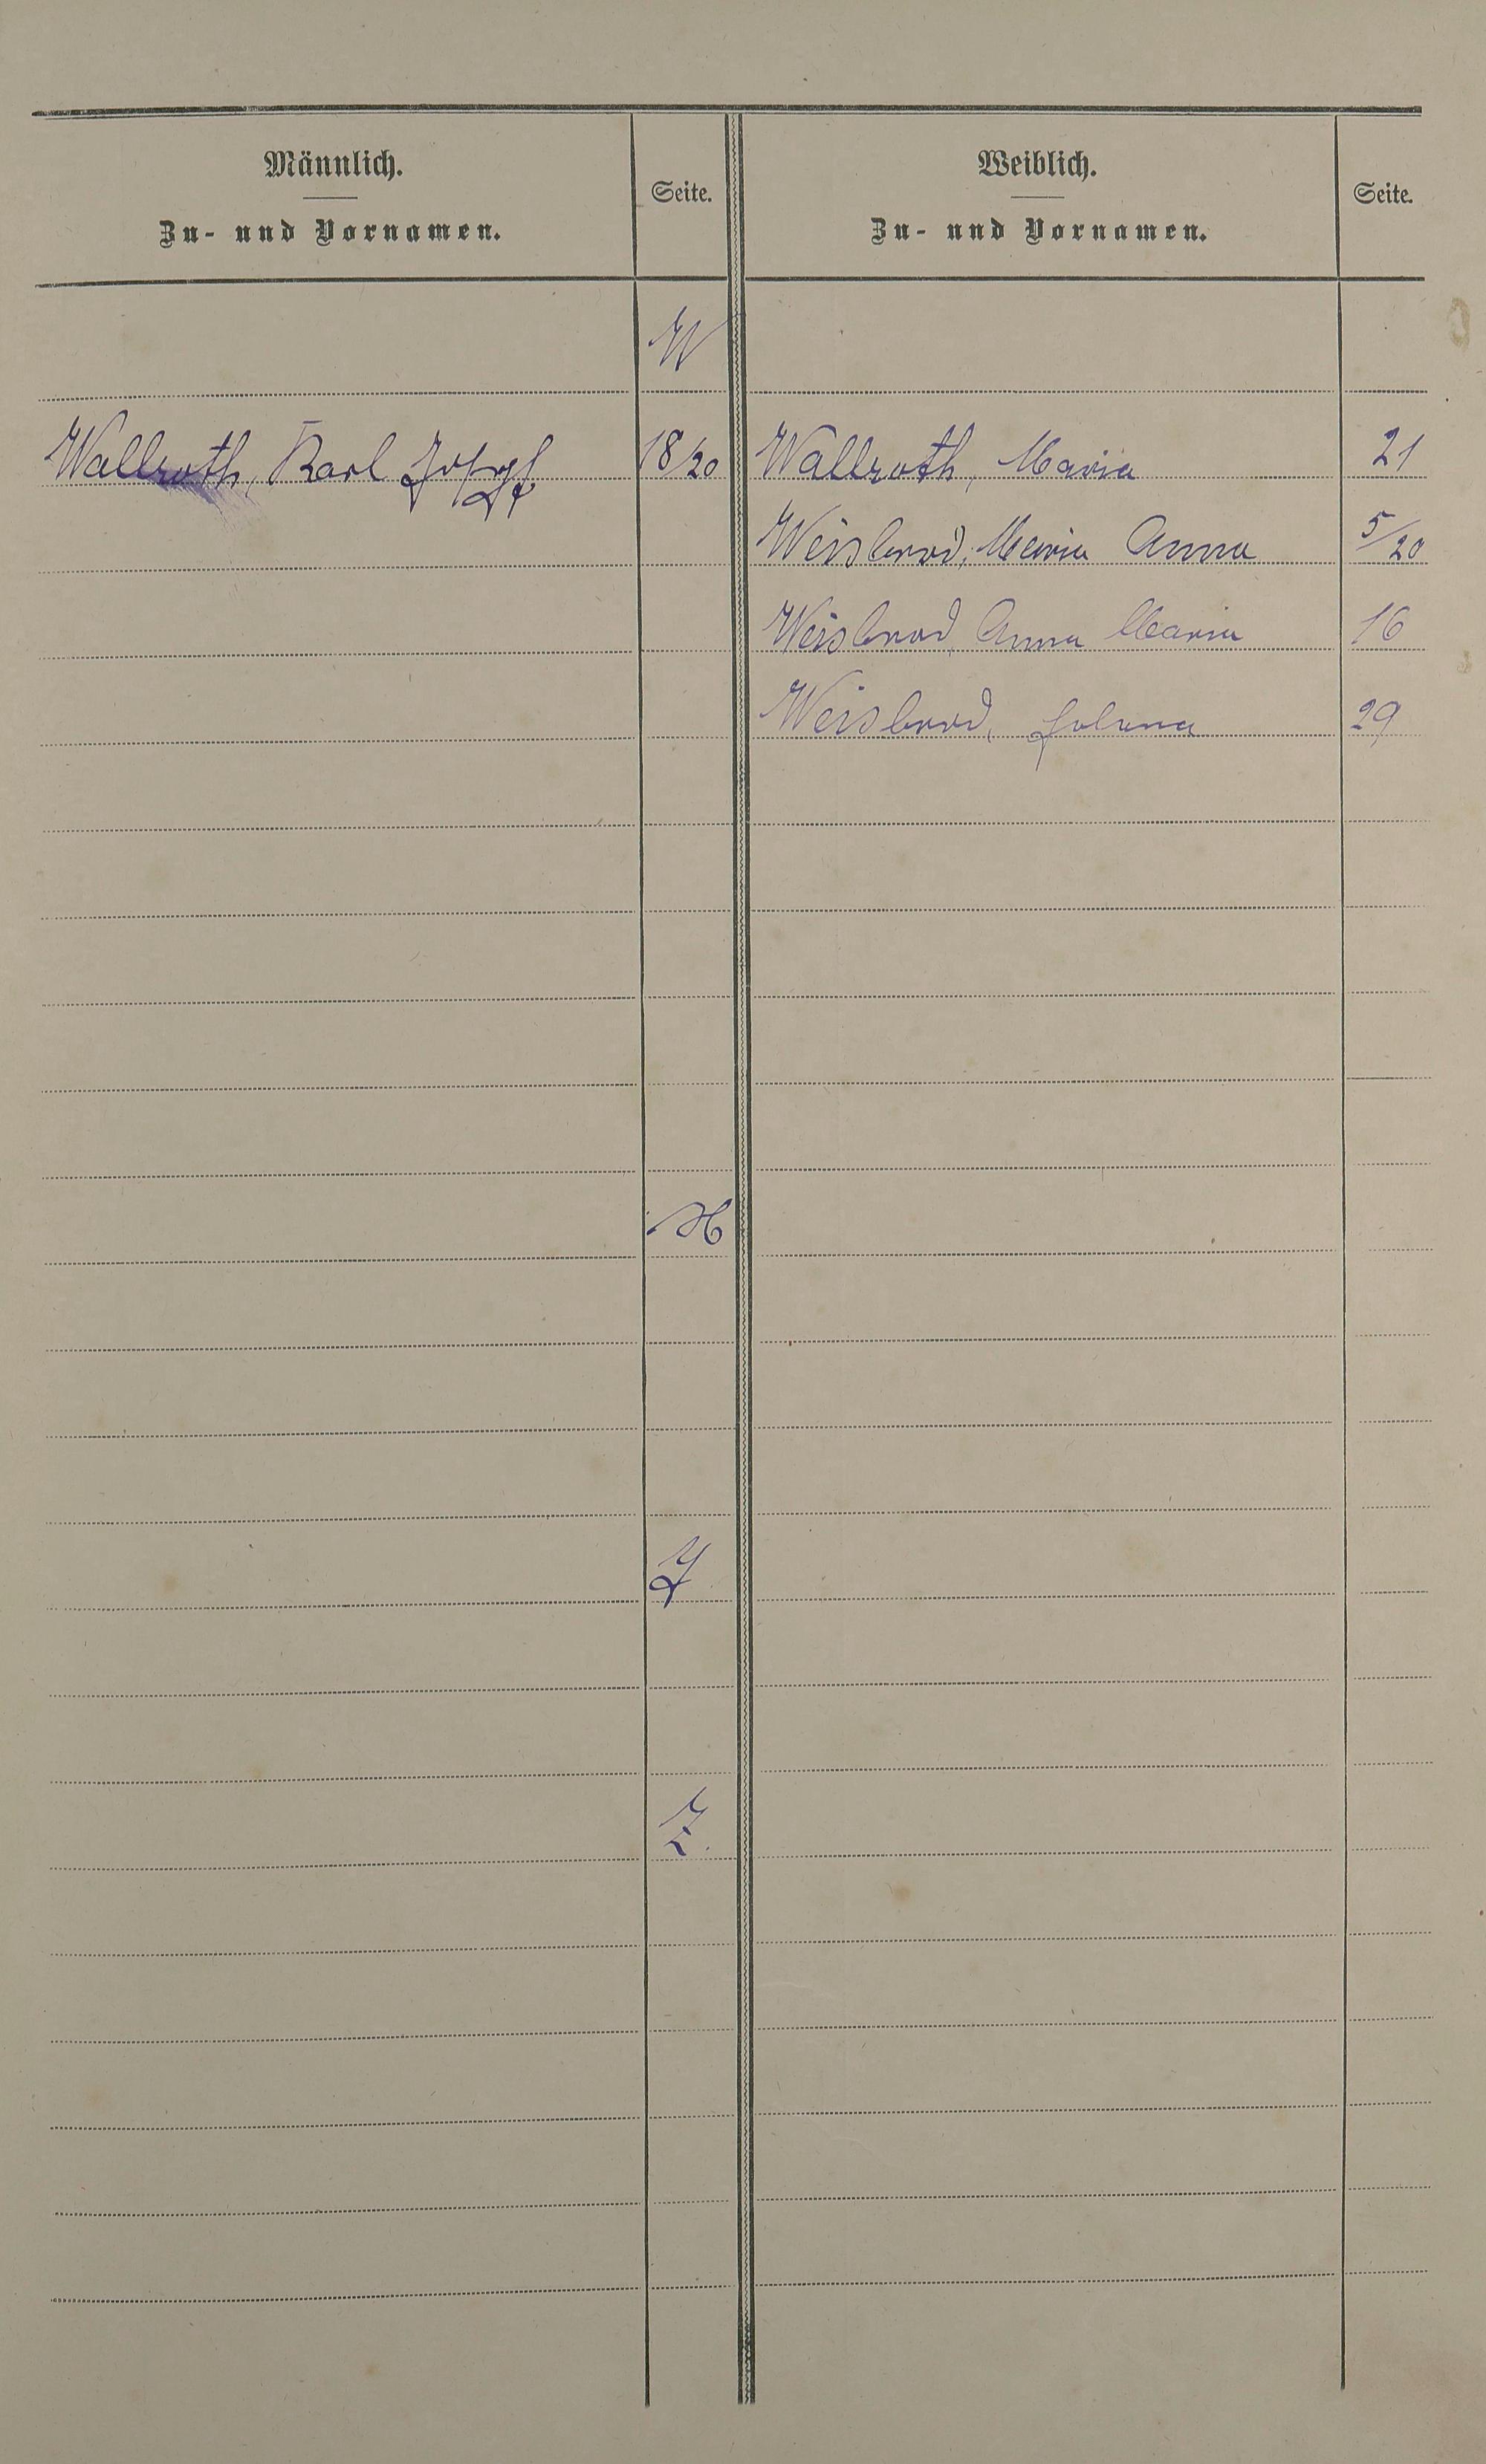 Männlich.
Zu- und Vornamen.
Seite.
Weiblich.
Zu- und Vornamen.
Seite.
W
Wallroth, Karl Joseph 18/20 Wallroth, Maria 21
Weisbrod, Maria Anna 5/20
Weisbrod, Anna Maria 16
Weisbrod, Helena 29
X
Y
Z.